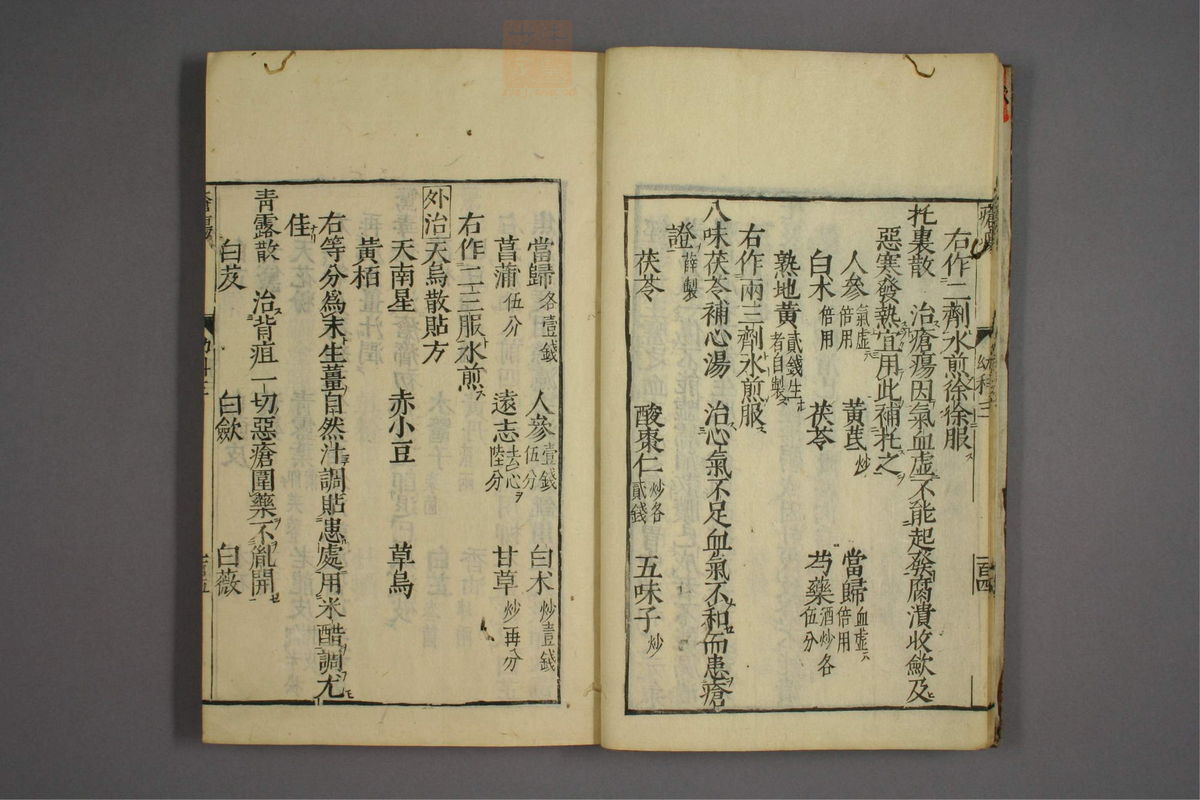 右作二劑水煎徐徐服ス
托裏散　治瘡瘍因氣血虛不能起發腐潰收斂及ヒ
惡寒發熱宜用此補托之
人參氣虛倍用　黃芪炒　當歸血虛倍用
白朮倍用　茯苓　芍藥酒炒各伍分
熟地黃貳錢生者自製ス
右作兩三劑水煎服ス
八味茯苓補心湯　治心氣不足血氣不和而患瘡
證薛製
茯苓　酸棗仁炒各貳錢　五味子炒
百四
幼科三
當歸各壹錢　人參壹錢伍分　白朮炒壹錢
菖蒲伍分　遠志去心陸分　甘草炒再分
右作二三服水煎ス
外治天烏散貼方
天南星　赤小豆　草烏
黃栢
右等分爲末生薑自然汁調貼患處用米醋調尤モ
佳ナリ
靑露散　治背疽一切惡瘡圍藥不亂開
白芨　白斂　白薇